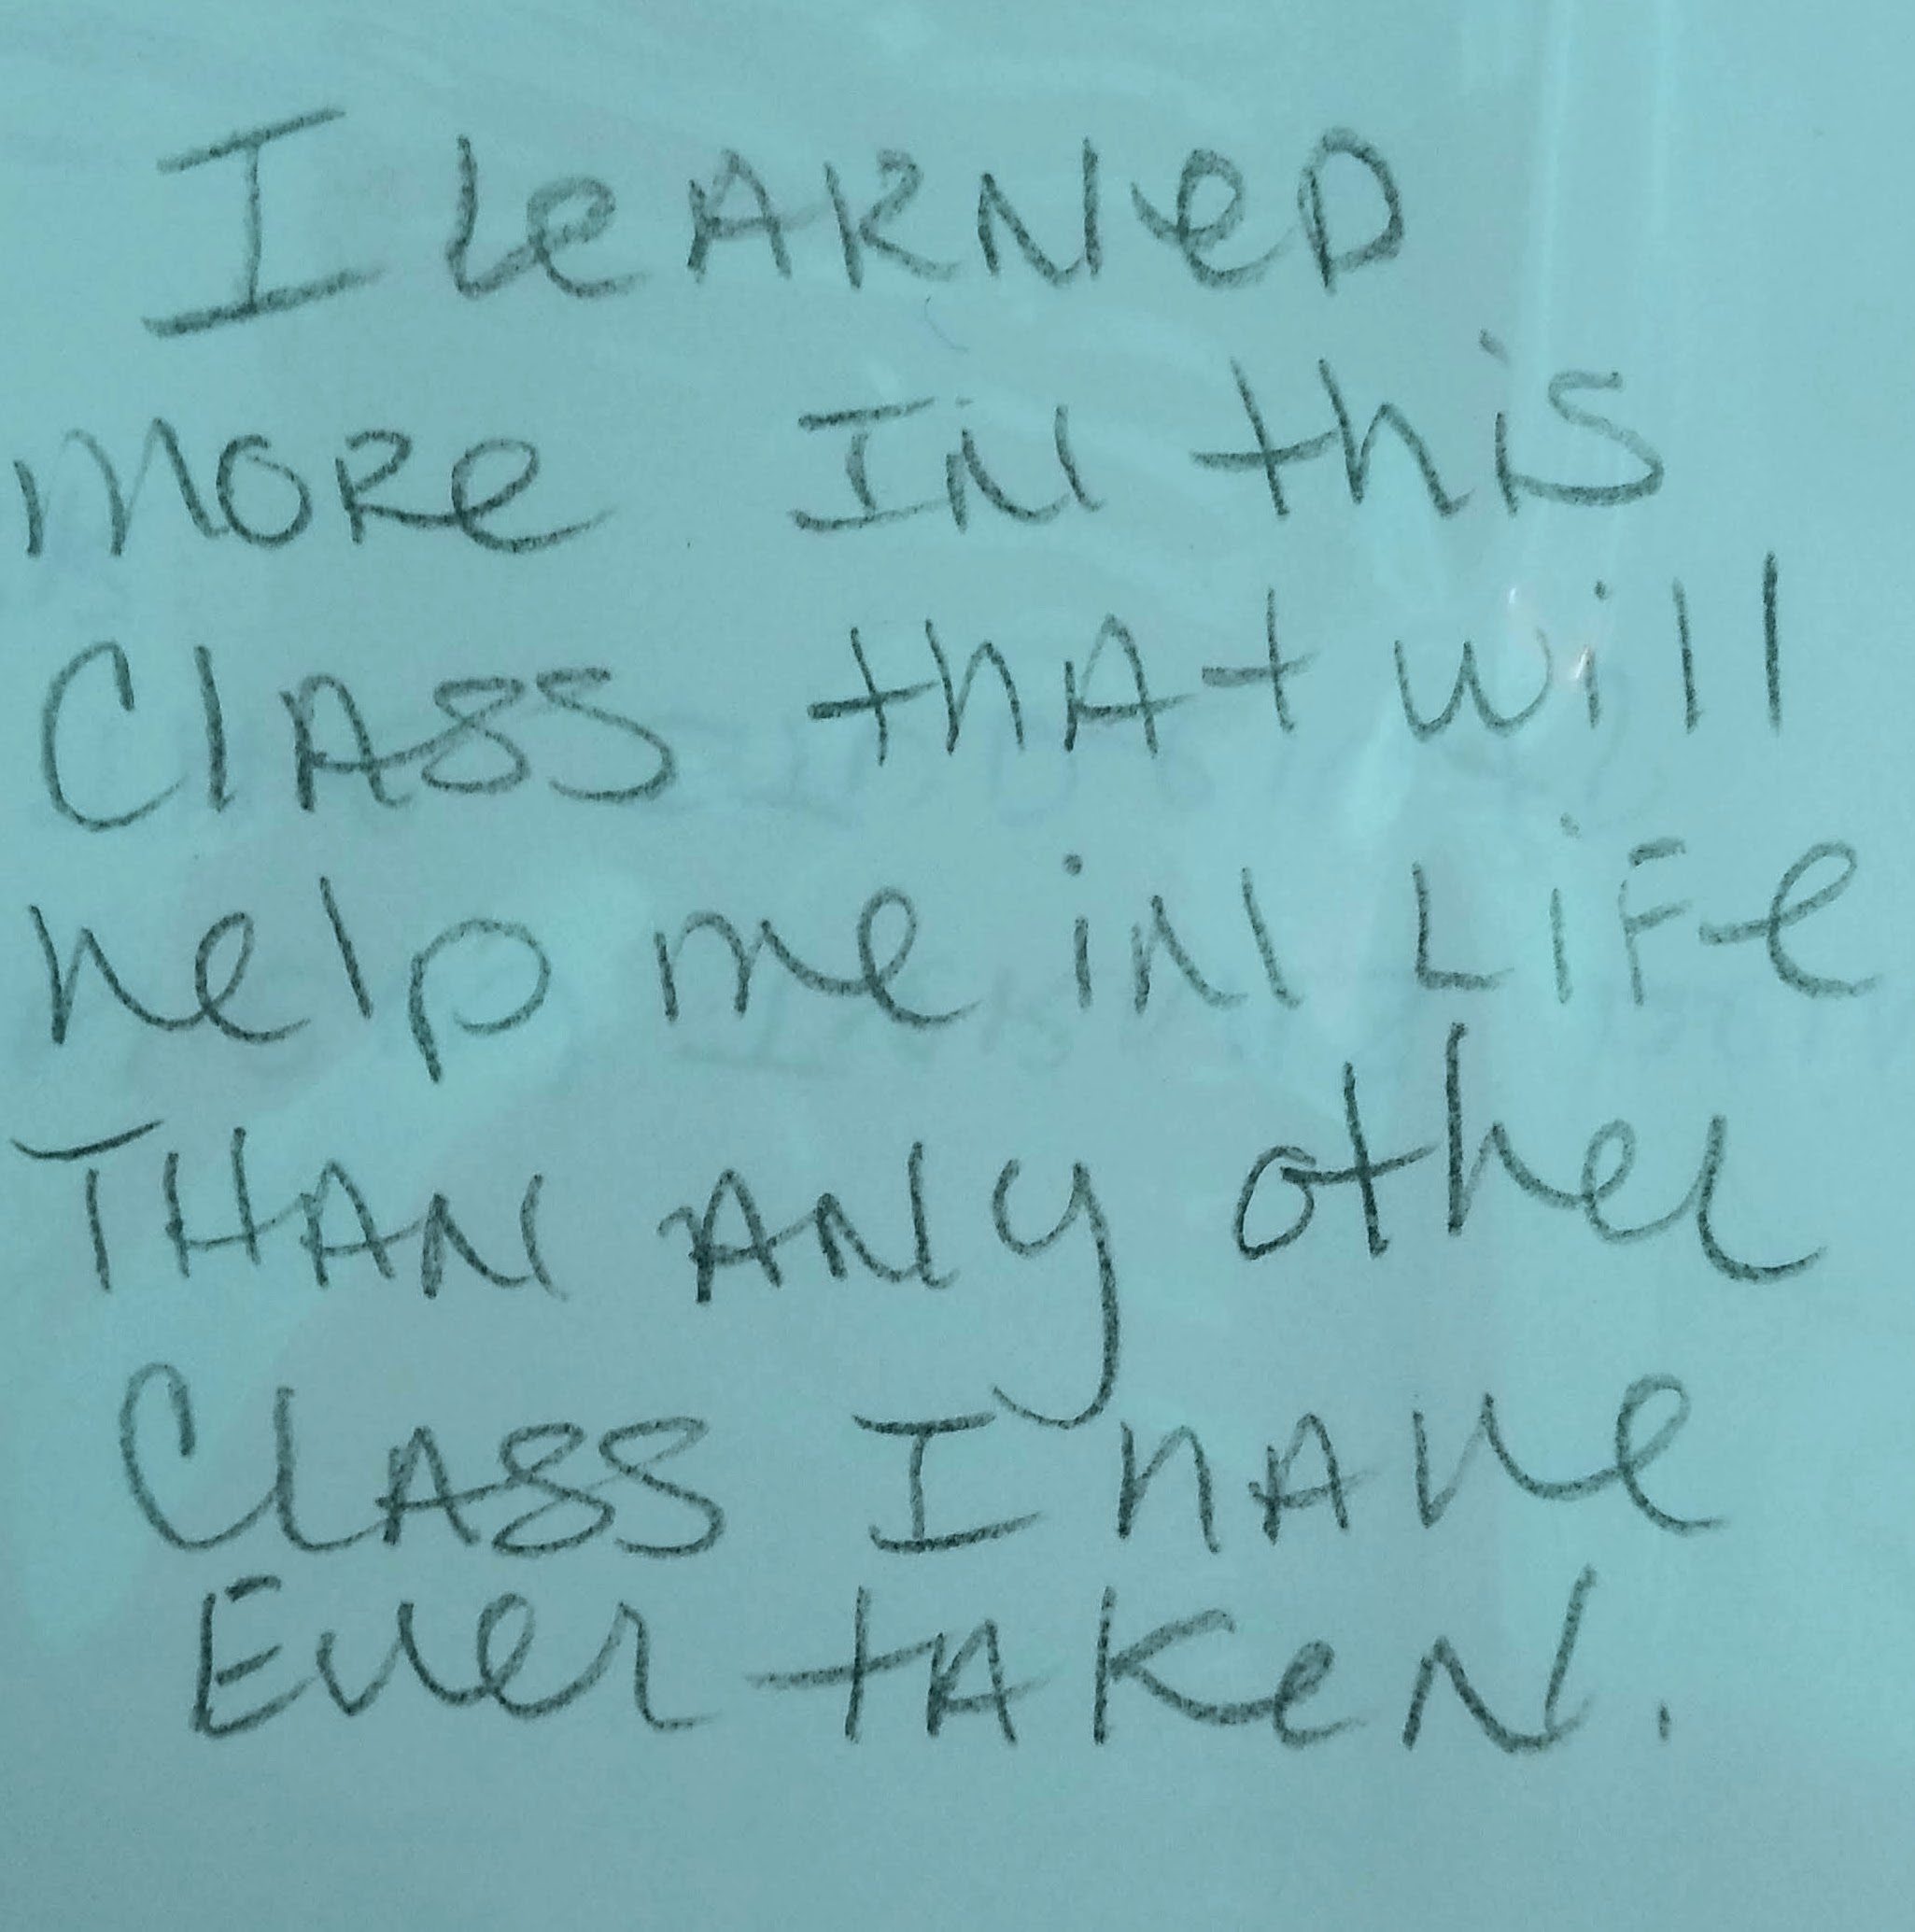 I LeARNeD
MORe IN this
ClASS thAt will
help me iN LiFe
THAN ANy other
ClASS I hAve
Ever tAKeN.